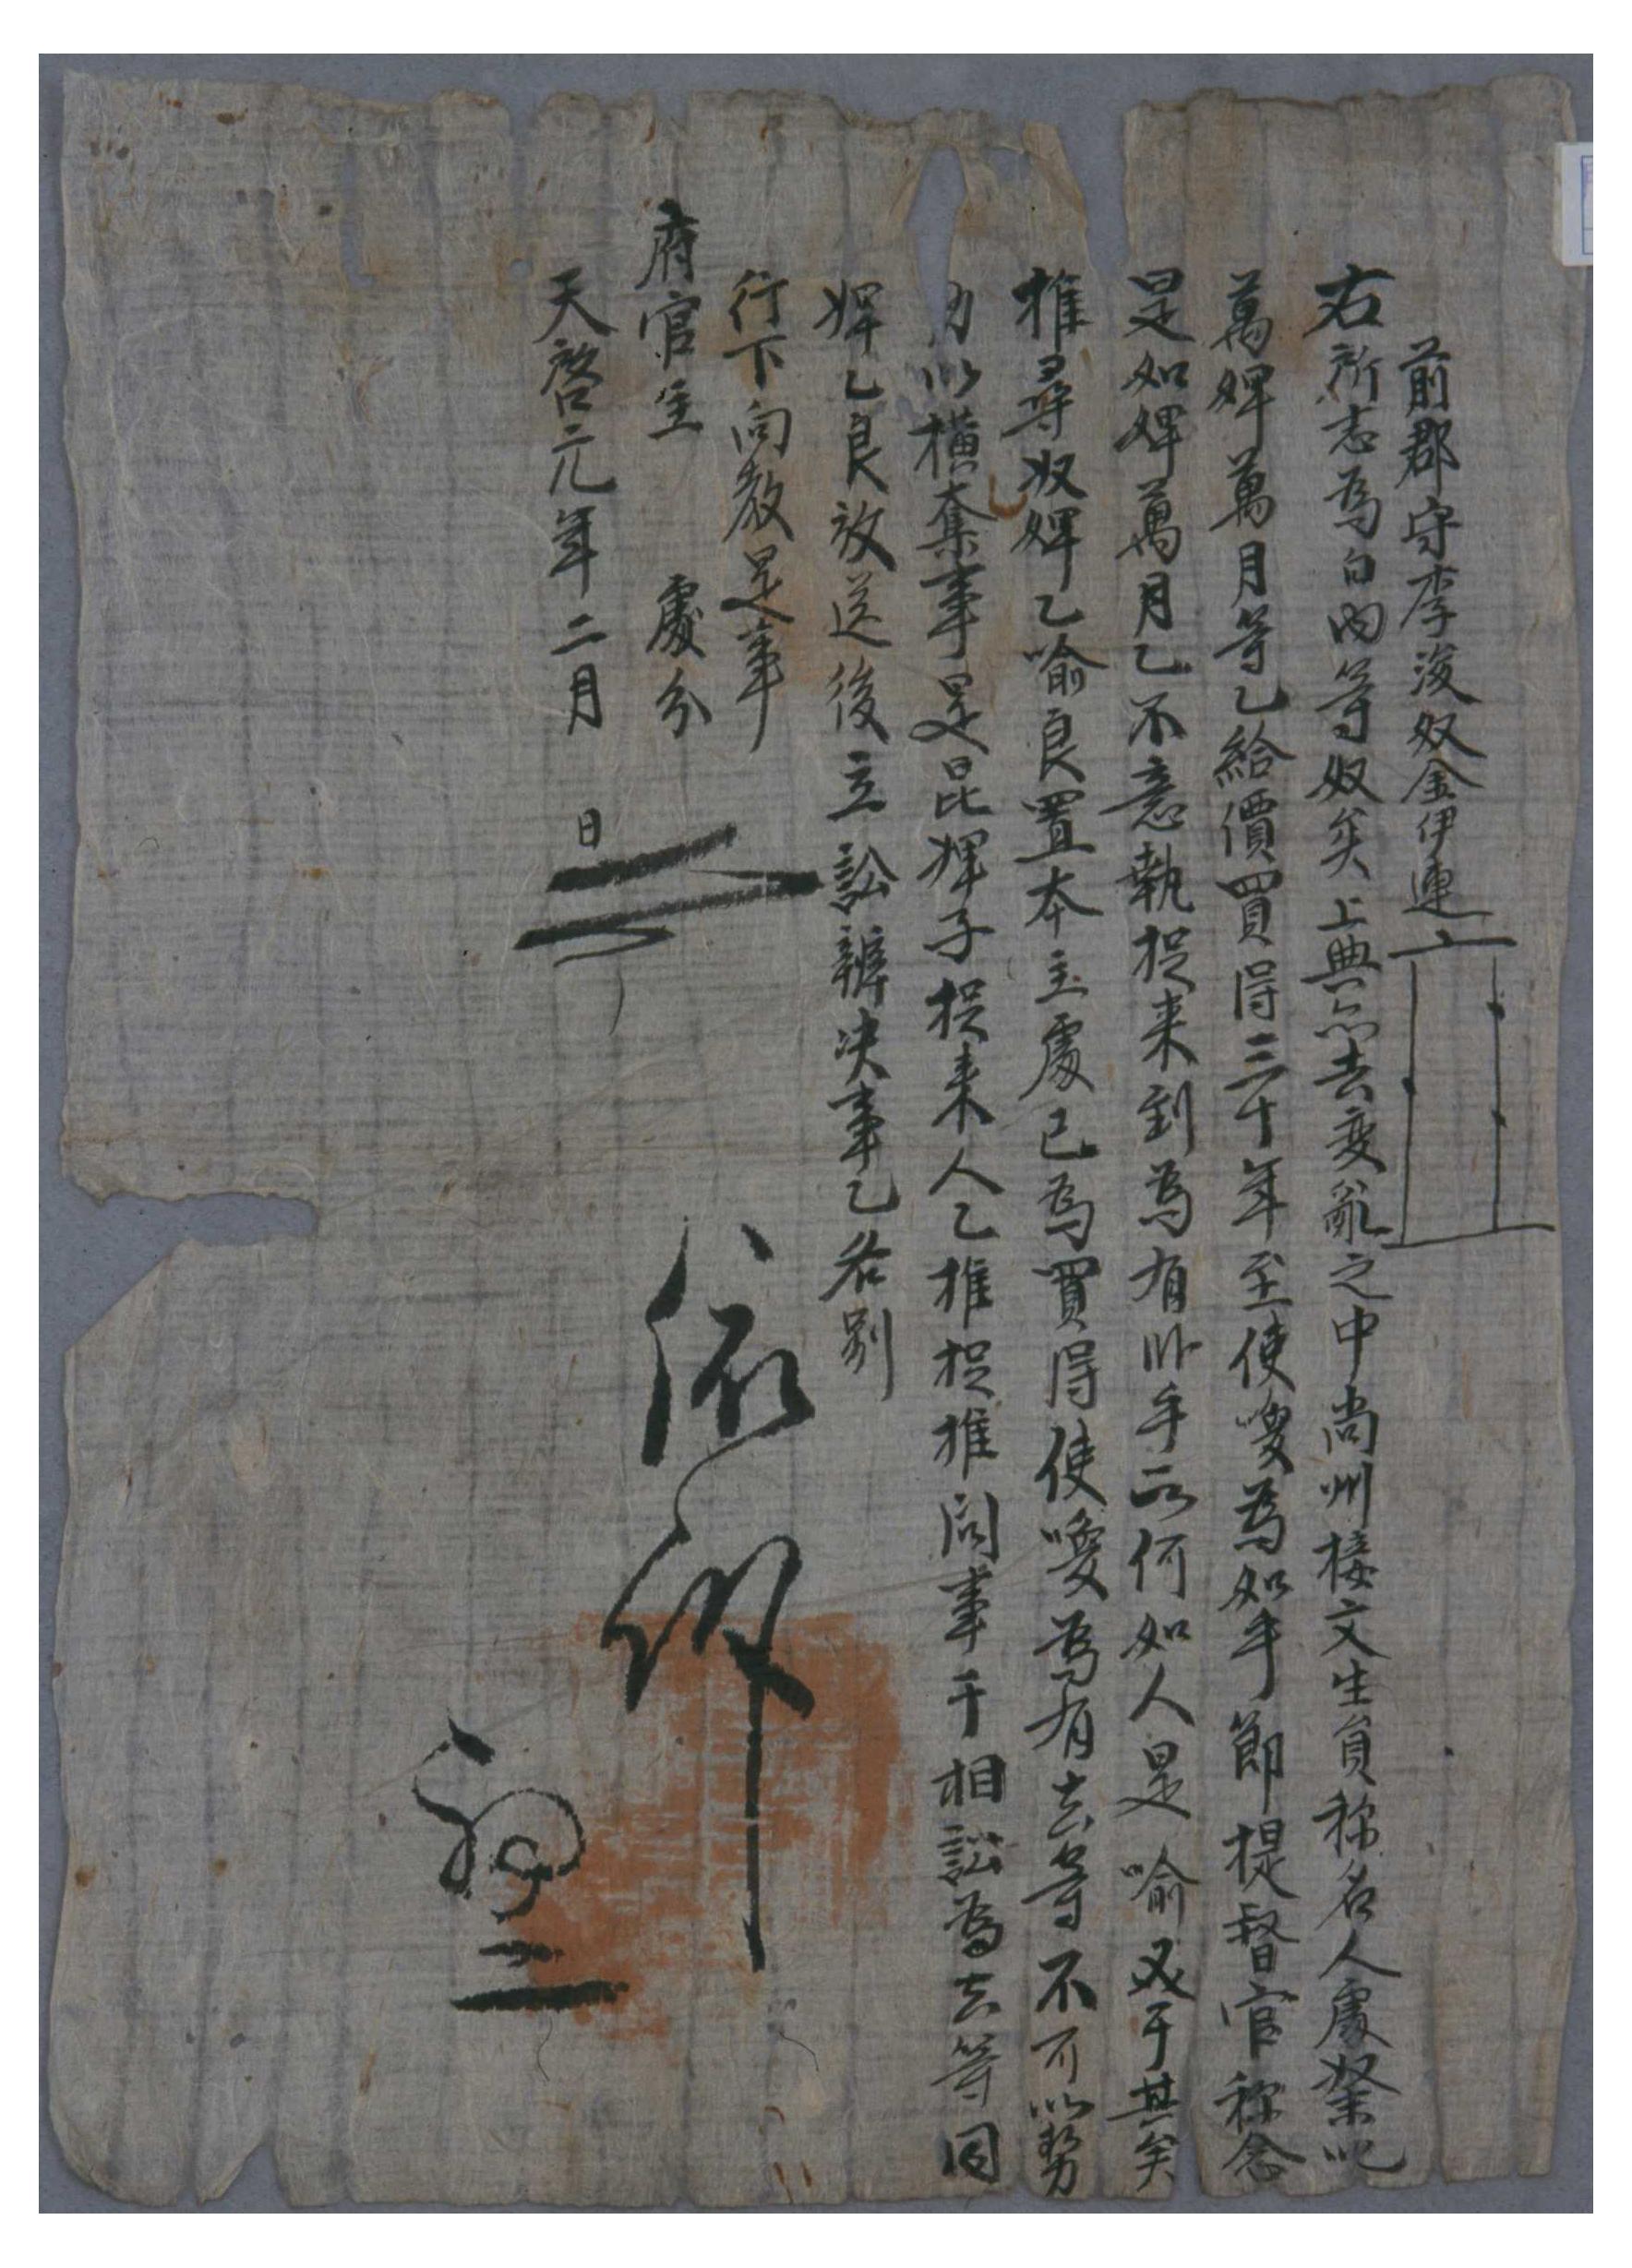 前郡守李浚奴金伊連
右所志爲白內等奴矣上典亦去變亂之中尙州接文生員稱名人處奴
萬婢萬月等乙給價買得三十年至使喚爲如乎節提督官稱念
是如婢萬月乙不意執捉來到爲有昨乎所何如人是喩及于其矣
推尋奴婢乙喩良置本主處已爲買得使喚爲有去等不可以勢
力以橫奪事是昆婢子捉來人乙推捉推問事干相訟爲去等同
婢乙良放送後立訟辨決事乙各別
行下向敎是事
府官主 處分
天啓元年二月 日
依